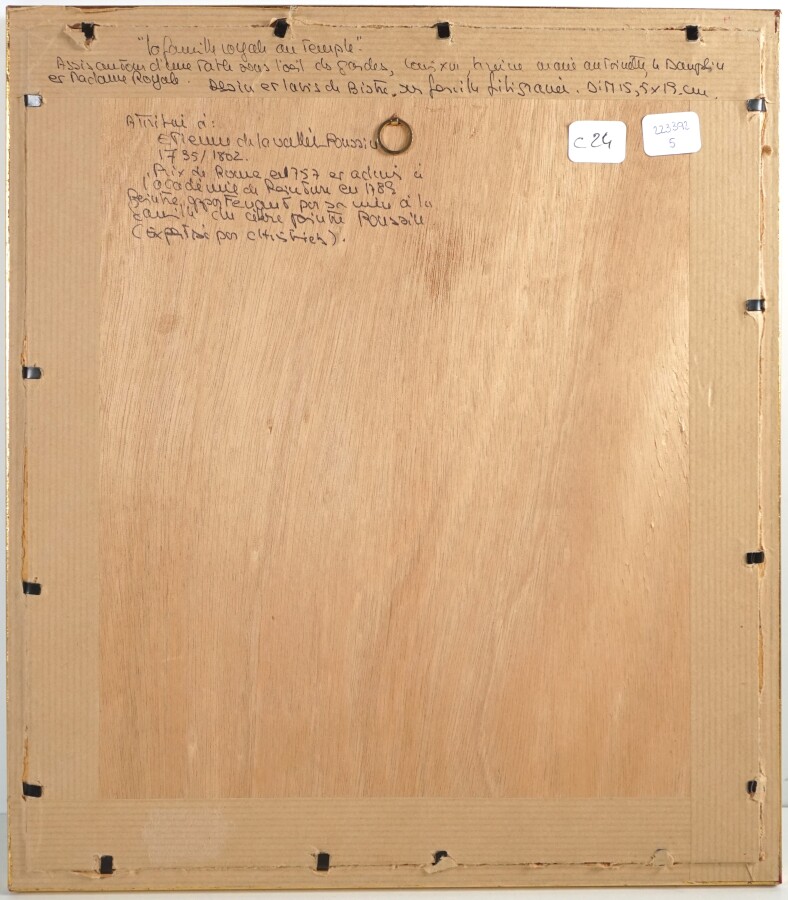 "la famille royale au Temple".
Assis autour d'une Table sous l'oeil des gardes, Louis XVI la reine marie antoinette, le Dauphin
et Madame Royale. Dessin et lavis de Bistre, sur feuille filigranée. DiM 15,5 x 19 cm.
Attribué à:
Etienne de lavallée Poussin
1735/1802.
Prix de Rome en 1757 et admis à
l'académie de Peinture en 1789
Peintre, appartenant par sa mère à la
famille du célèbre peintre Poussin
(expertisé par christie's).
C 24
223392
5